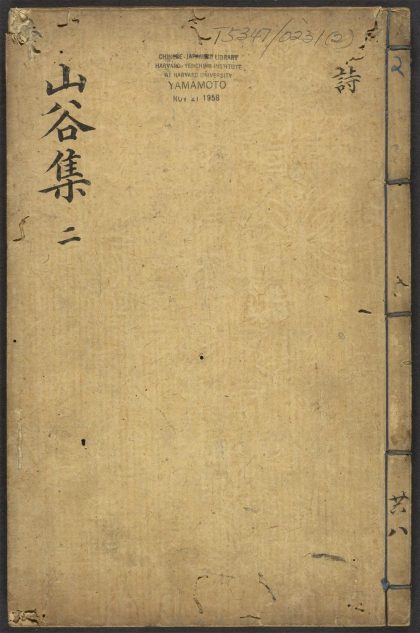 T5347/0231(2)
CHINESE-JAPANESE LIBRARY
HARVARD-YENCHING INSTITUTE
AT HARVARD UNIVERSITY
YAMAMOTO
NOV 21 1958
詩
山谷集 二
2
共八